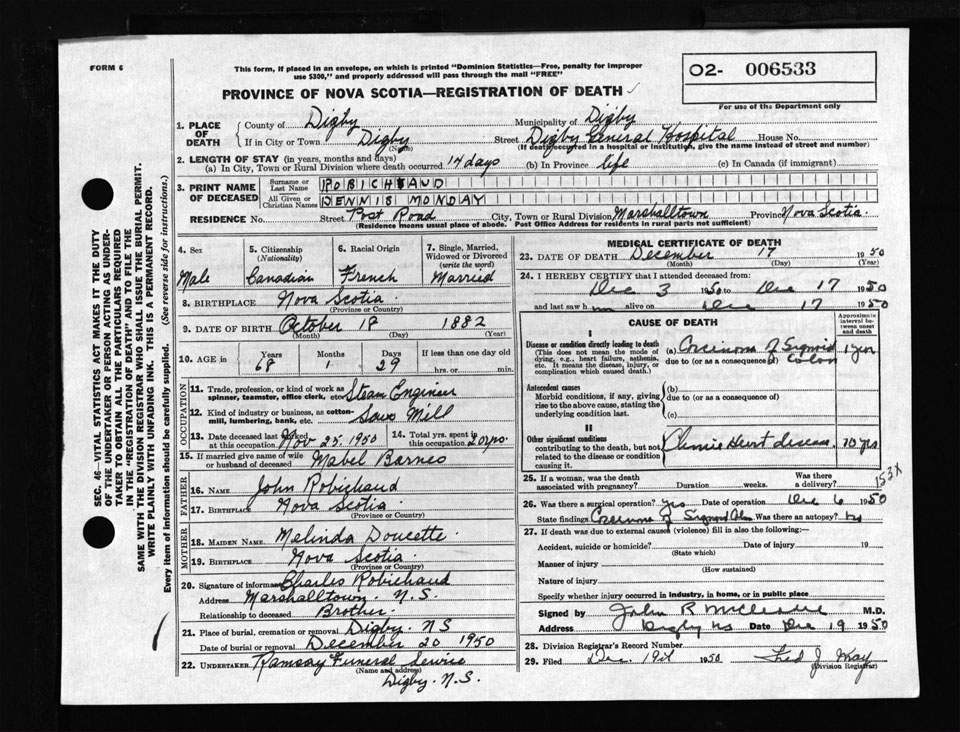 FORM 6
This form, if placed in an envelope, on which is printed "Dominion Statistics—Free, penalty for improper
use $300," and properly addressed will pass through the mail "FREE"
PROVINCE OF NOVA SCOTIA—REGISTRATION OF DEATH ✓
O2- 006533
For use of the Department only
SEC. 46—VITAL STATISTICS ACT MAKES IT THE DUTY
OF THE UNDERTAKER OR PERSON ACTING AS UNDER-
TAKER TO OBTAIN ALL THE PARTICULARS REQUIRED
IN THE "REGISTRATION OF DEATH" AND TO FILE THE
SAME WITH THE DIVISION REGISTRAR WHO SHALL ISSUE THE BURIAL PERMIT.
WRITE PLAINLY WITH UNFADING INK. THIS IS A PERMANENT RECORD.
Every item of Information should be carefully supplied. (See reverse side for instructions.)
1. PLACE OF DEATH
County of Digby Municipality of Digby
If in City or Town Digby (Name) Street Digby General Hospital House No.
(If death occurred in a hospital or institution, give the name instead of street and number)
2. LENGTH OF STAY (in years, months and days)
(a) In City, Town or Rural Division where death occurred 14 days (b) In Province life (c) In Canada (if immigrant)
3. PRINT NAME OF DECEASED
Surname or Last Name ROBICHEAUD
All Given or Christian Names DENNIS MONDAY
RESIDENCE No. Street Post Road City, Town or Rural Division Marshalltown Province Nova Scotia.
(Residence means usual place of abode. Post Office Address for residents in rural parts not sufficient)
4. Sex
Male
5. Citizenship
(Nationality)
Canadian
6. Racial Origin
French
7. Single, Married,
Widowed or Divorced
(write the word)
Married
8. BIRTHPLACE Nova Scotia
(Province or Country)
9. DATE OF BIRTH October 18 1882
(Month) (Day) (Year)
10. AGE in
Years Months Days If less than one day old
68 1 29 hrs. or min.
OCCUPATION
11. Trade, profession, or kind of work as
spinner, teamster, office clerk, etc. Steam Engineer
12. Kind of industry or business, as cotton-
mill, lumbering, bank, etc. Saw Mill
13. Date deceased last worked
at this occupation. Nov 25, 1950
14. Total yrs. spent in
this occupation 20 yrs.
15. If married give name of wife
or husband of deceased Mabel Barnes
FATHER
16. NAME John Robichaud
17. BIRTHPLACE Nova Scotia
(Province or Country)
MOTHER
18. MAIDEN NAME Melinda Doucette
19. BIRTHPLACE Nova Scotia
(Province or Country)
20. Signature of informant Charles Robichaud
Address Marshalltown. N.S.
Relationship to deceased Brother.
21. Place of burial, cremation or removal Digby. NS
Date of burial or removal December 20 1950
22. UNDERTAKER Ramsay Funeral Service
(Name and address)
Digby. N.S.
MEDICAL CERTIFICATE OF DEATH
23. DATE OF DEATH December 17 1950
(Month) (Day) (Year)
24. I HEREBY CERTIFY that I attended deceased from:
Dec 3 1950 to Dec 17 1950
and last saw him alive on Dec 17 1950
CAUSE OF DEATH
Approximate
interval be-
tween onset
and death
I
Disease or condition directly leading to death
(This does not mean the mode of
dying, e.g., heart failure, asthenia,
etc. It means the disease, injury, or
complication which caused death.)
(a) Carcinoma of Sigmoid
due to (or as a consequence of) Colon
1 year
Antecedent causes
Morbid conditions, if any, giving
rise to the above cause, stating the
underlying condition last.
(b)
due to (or as a consequence of)
(c)
II
Other significant conditions
contributing to the death, but not
related to the disease or condition
causing it.
Chronic Heart disease. 10 yrs
25. If a woman, was the death
associated with pregnancy? Duration weeks. Was there
a delivery?
153X
26. Was there a surgical operation? yes Date of operation Dec 6 1950
State findings Carcinoma of Sigmoid Colon Was there an autopsy? No
27. If death was due to external causes (violence) fill in also the following:—
Accident, suicide or homicide? Date of injury 19
(State which)
Manner of injury
(How sustained)
Nature of injury
Specify whether injury occurred in industry, in home, or in public place
Signed by John R M.D.
Address Digby NS Date Dec 19 1950
28. Division Registrar's Record Number
29. Filed Dec. 19th 1950 Fred J. May
(Division Registrar)